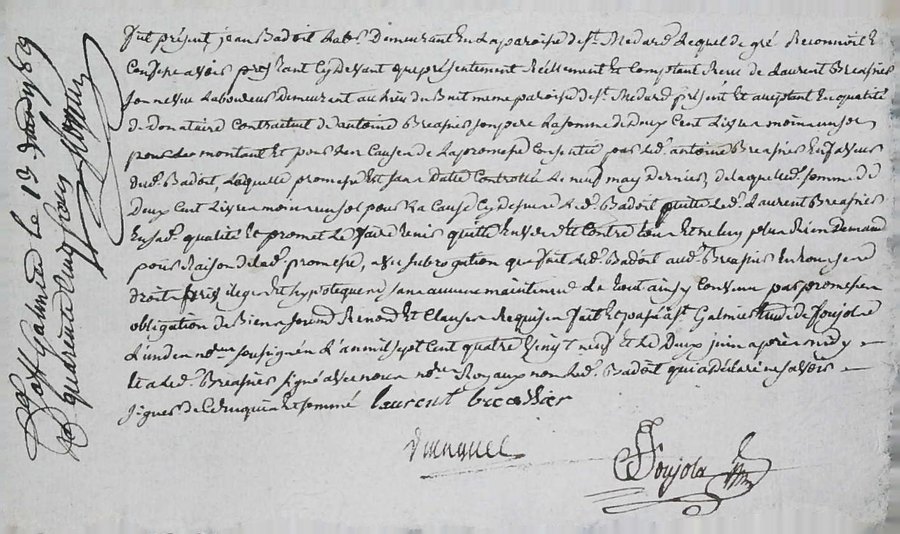 fut présent, jean Badoit lab.r demeurant en la paroisse de St. Medard, lequel de gré Reconnoit Et
Confesse avoir presentant Cy devant que présentement Réellement Et Comptant Reçu de Laurent Breasnier
son neveu Laboureur demeurant au lieu du Buit meme paroisse de St. Medard, présent Et acceptant en qualité
de donataire Contractuel de antoine Breasnier son pere La somme de Deux Cent Livres moins un sol
pour le montant Et pour les Causes de La promesse Consentie par led. antoine Breasnier En faveur
dud. Badoit, Laquelle promesse Est sans datte Controllée Le neuf may dernier, de laquelle somme de
Deux Cent Livres moins un sol pour La Cause Cy dessus led. Badoit quitte led. Laurent Breasnier
En sad. qualité Et promet Le faire tenir quitte Envers Et Contre tous Et ne luy plus Rien Demander
pour Raison de lad. promesse, avec subrogation que fait led. Badoit aud. Breasnier En tous ses
droits privileges Et hypoteques sans aucune maintenue de tout ainsy Convenu par promesse
obligation de Biens soumis Renond. Et Clauses Requises fait Et passé a St. Galmier Etude de Soujola
L'un des no.res soussignés L'an mil sept Cent quatre vingt neuf et le Deux juin après midy
Et a led. Breasnier signé avec nous no.res Royaux non led. Badoit qui a déclaré ne savoir
signer de Ce Enquis Et sommé laurent breasnier
Soujola
St Galmier le 13 juin 89
quarente deux sous